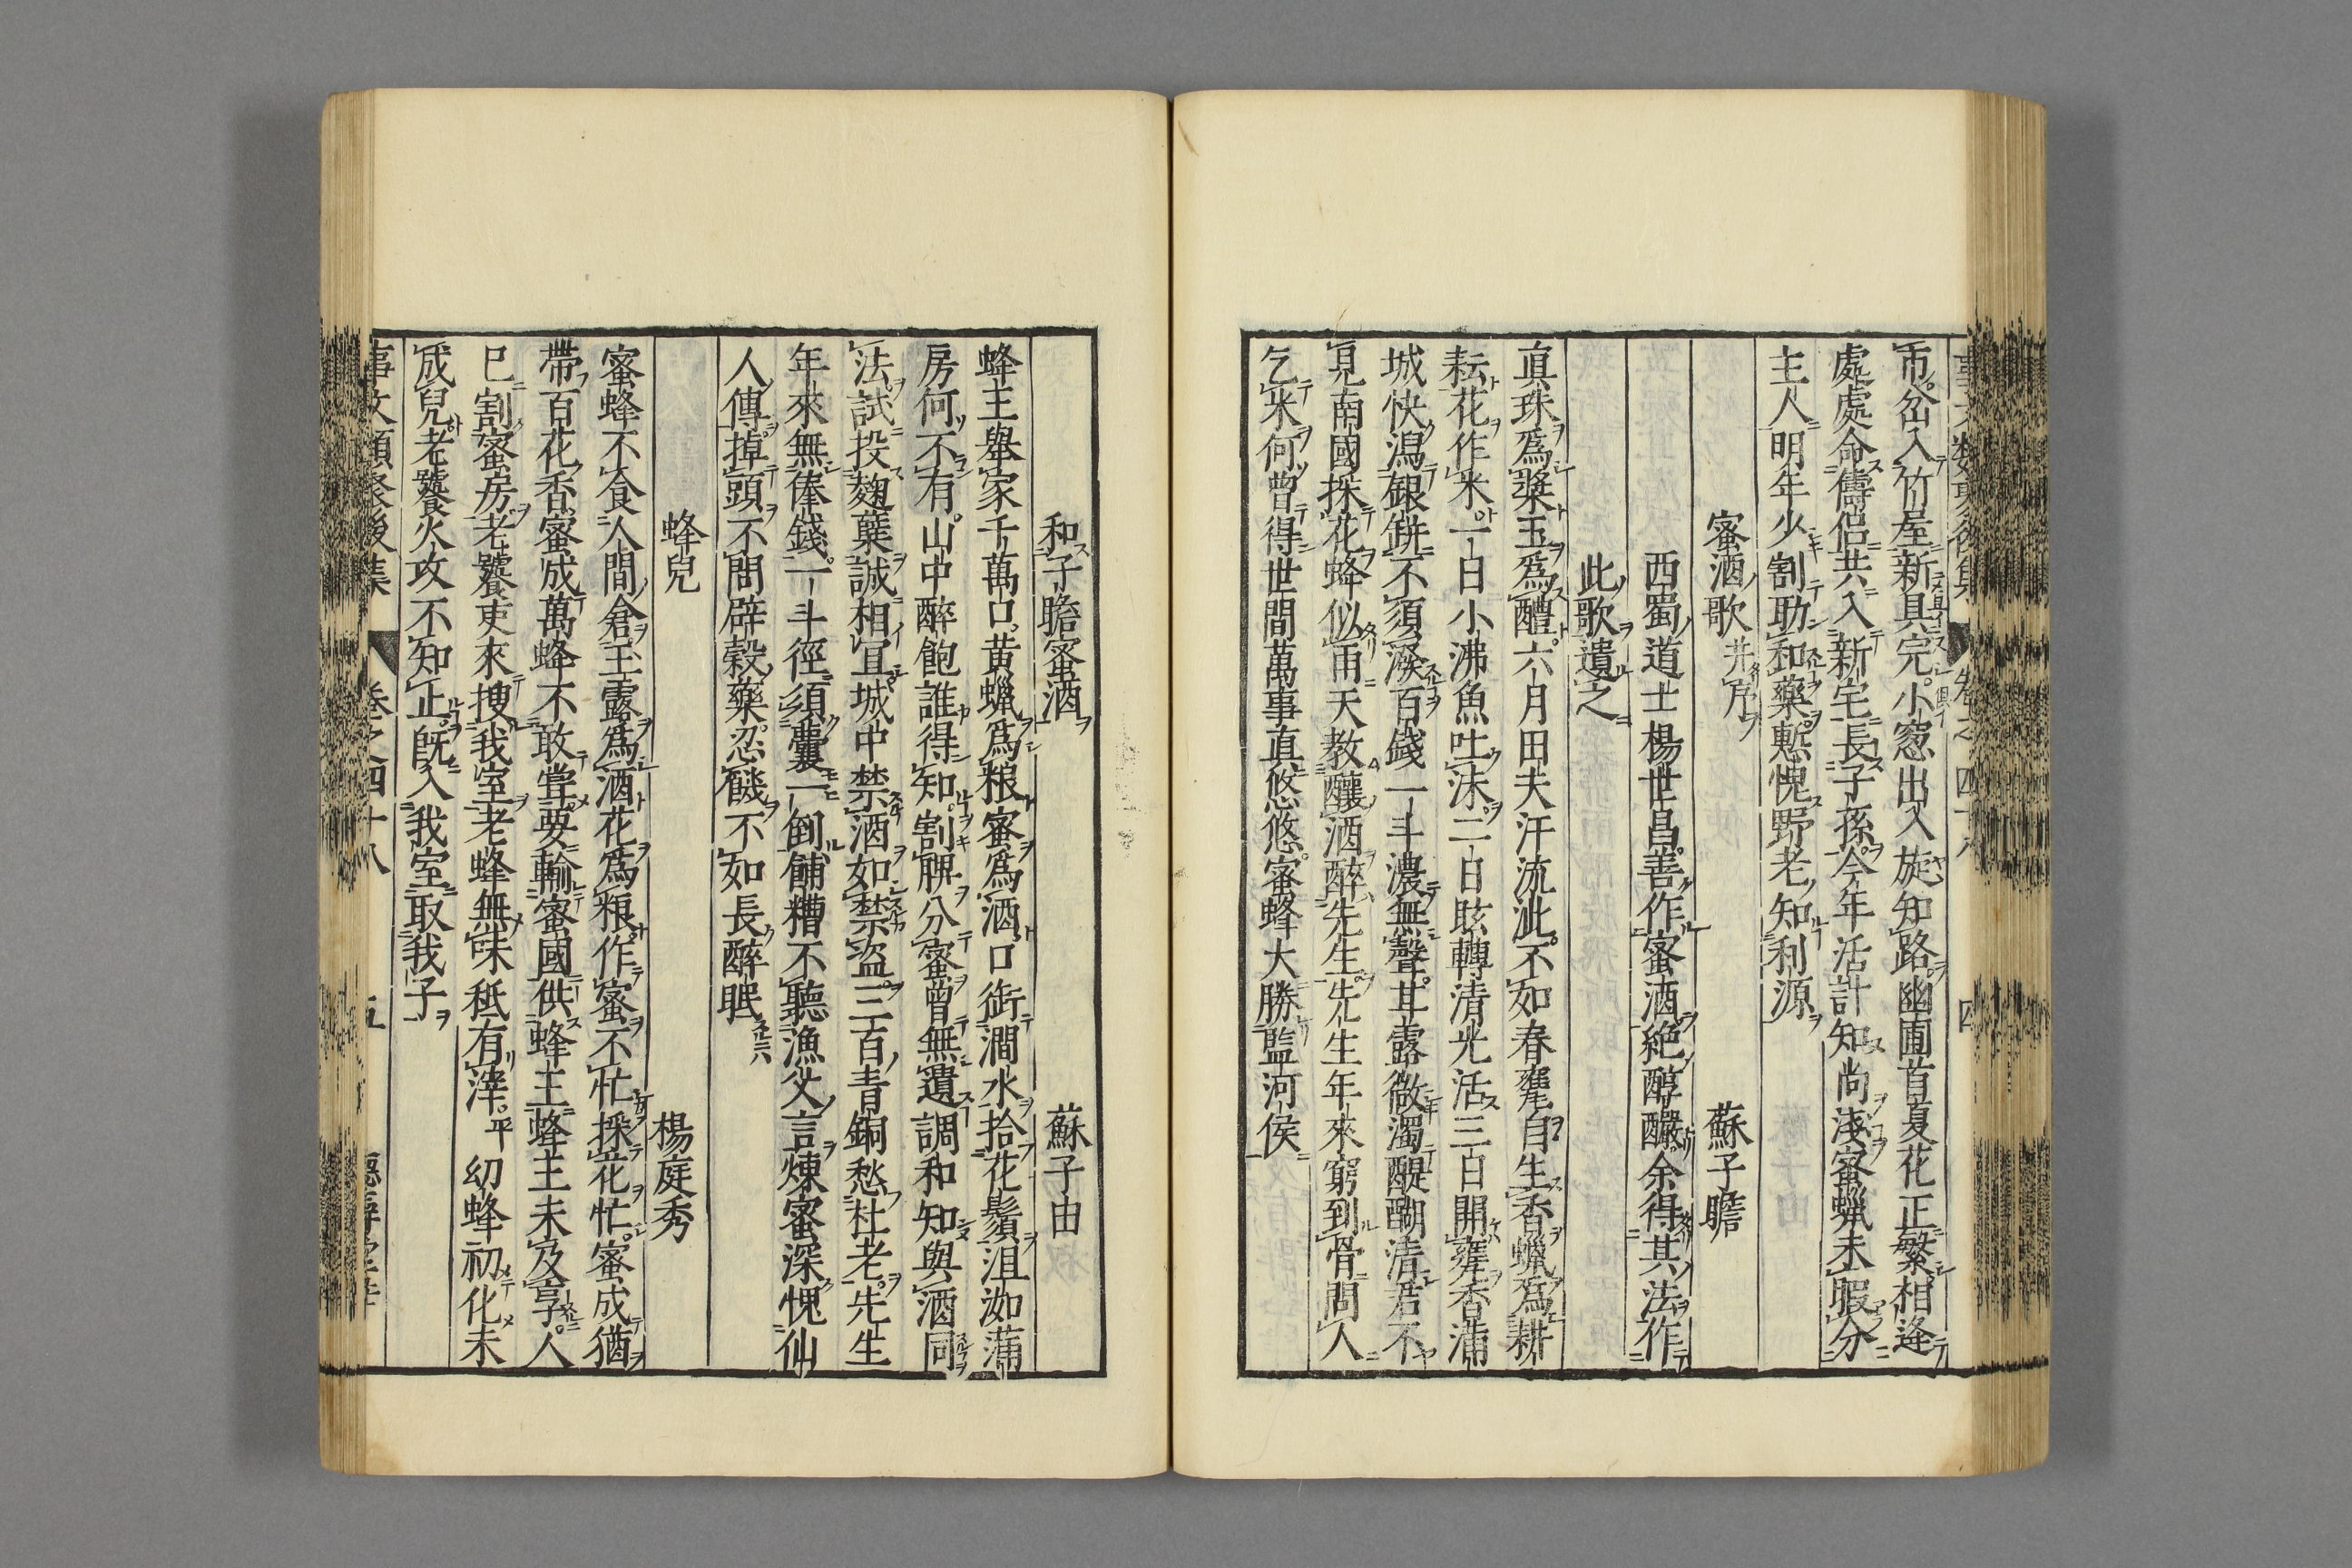 市畚入竹屋新具完小窓出入旋知路幽圃首夏花正繁相逢
處處命儔侶共入新宅長子孫今年活計知尚淺蜜蠟未暇分
主人明年少割助和藥慙愧野老知利源
蜜酒歌并序 蘇子瞻
西蜀道士楊世昌善作蜜酒絶醇釅余得其法作
此歌遺之
真珠爲漿玉爲醴六月田夫汗流泚不如春甕自生香蠟爲耕
耘花作米一日小沸魚吐沫二日眩轉清光活三日開甕香滿
城快瀉銀缾不須潑百錢一斗濃無聲甘露微濁醍醐清君不
見南國採花蜂似雨天教釀酒醉先生先生年來窮到骨問人
乞米何曾得世間萬事真悠悠蜜蜂大勝監河侯
和子瞻蜜酒 蘇子由
蜂王舉家千萬口黄蠟爲粮蜜爲酒口銜澗水拾花鬚沮洳蒲
房何不有山中醉飽誰得知割脾分蜜曾無遺調和知與酒同
法試投麹糵誠相宜城中禁酒如禁盜三百青銅愁杜老先生
年來無俸錢一斗徑須囊一倒餔糟不聽漁父言煉蜜深愧仙
人傳掉頭不問辟穀藥忍饑不如長醉眠
蜂兒 楊庭秀
蜜蜂不食人間倉玉露爲酒花爲粮作蜜不忙採花忙蜜成猶
帶百花香蜜成萬蜂不敢甞要輸蜜國供蜂王蜂王未及享人
已割蜜房老饕吏來搜我室老蜂無味秖有滓平幼蜂初化未
成兒老饕火攻不知止既入我室取我子
事文類聚後集 卷之四十八 五